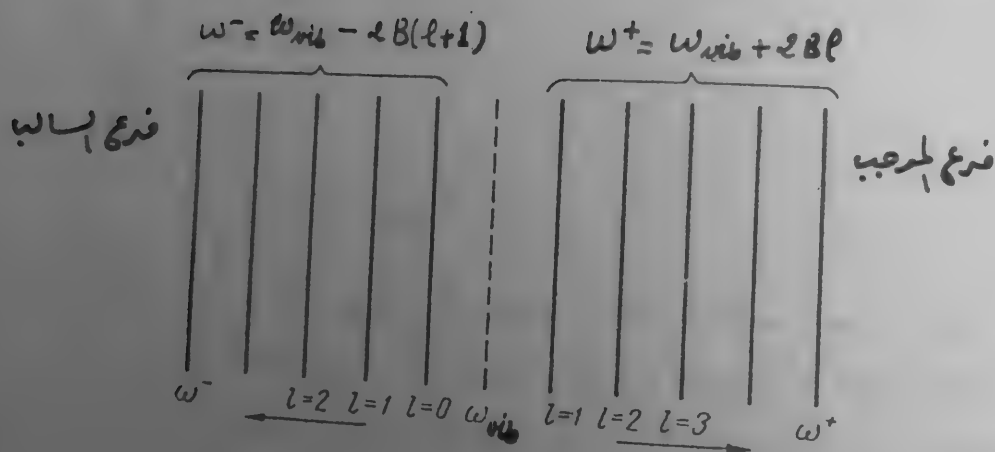 ω⁻ = ω_vib − 2B(l+1)
ω⁺ = ω_vib + 2Bl
فرع السالب
فرع الموجب
ω⁻ l=2 l=1 l=0 ω_vib l=1 l=2 l=3 ω⁺